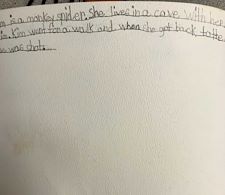 is a monkey spider. She lives in a cave with her
. Kim went for a walk and when she got back to the
was shot.